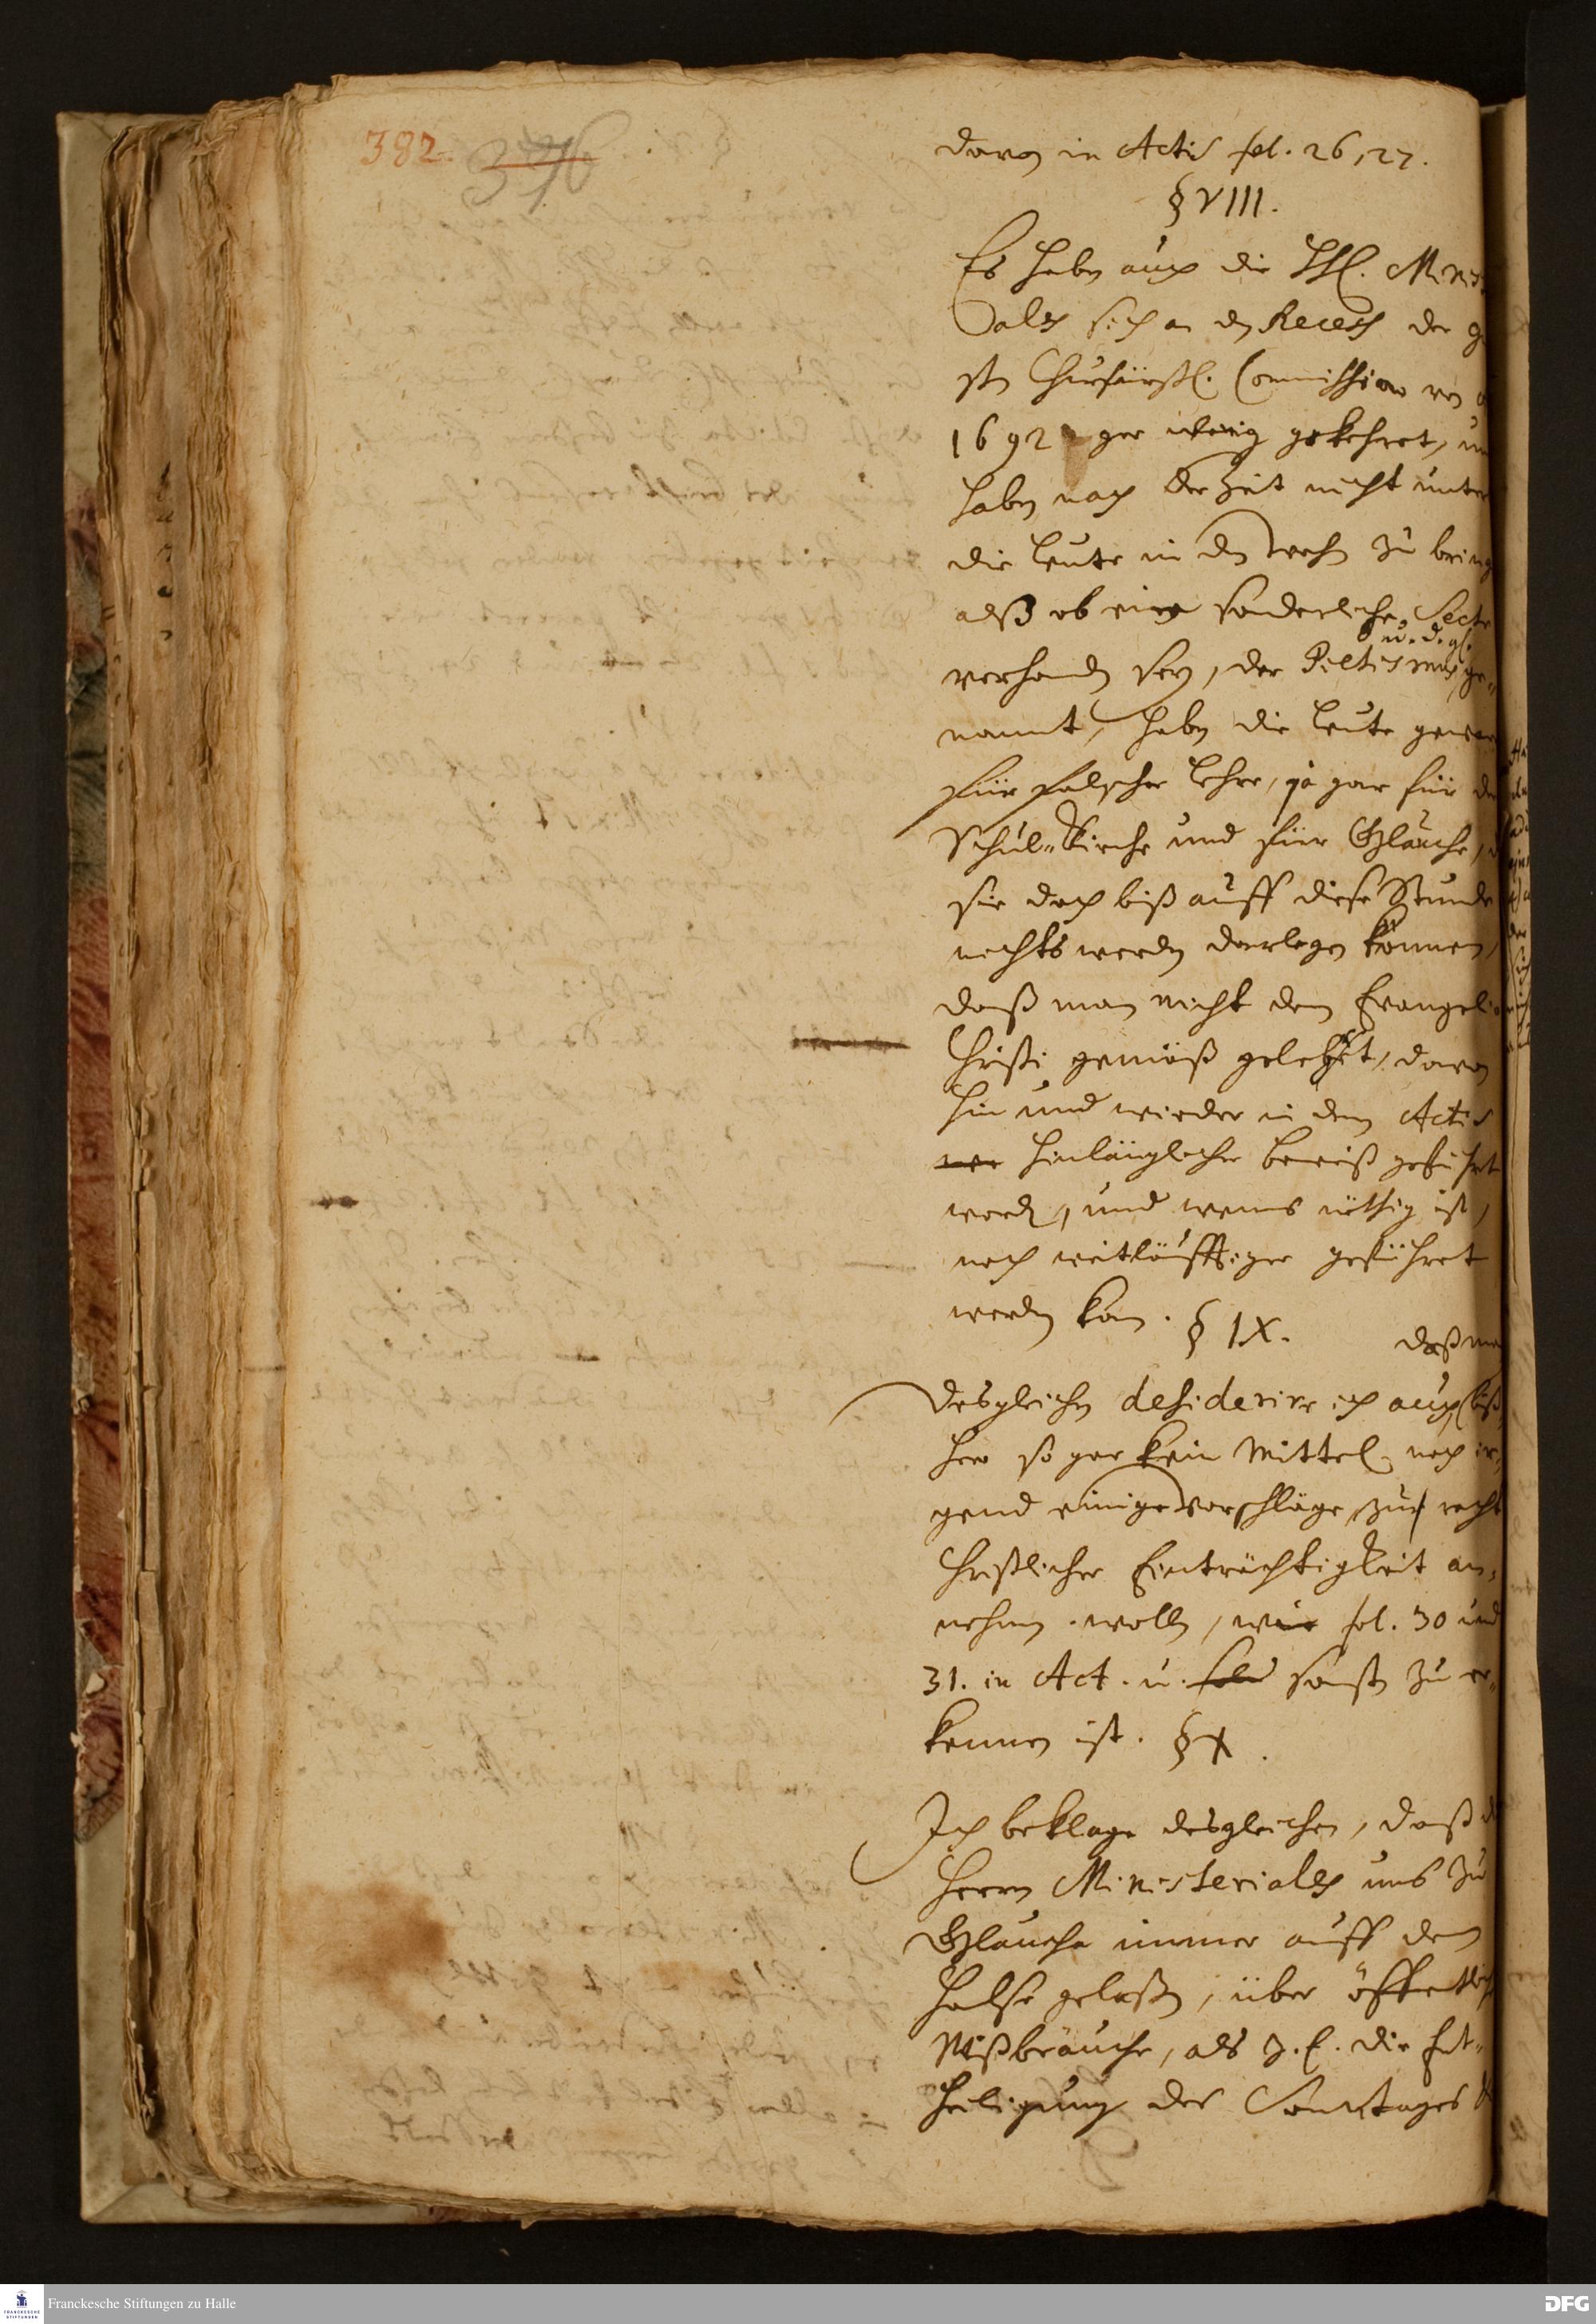 382. 376
davon in Actis fol. 26, 27.
§ VIII.
Es haben auch die HH. Minist
riales sich an den Recess der
sten Churfürstl. Commission von
1692 gar wenig gekehret, un
haben nach der Zeit nicht unter
die Leute in den wahn zu bring
alß ob eine sonderliche Secte
u. d. gl.
vorhanden sey, der Pietismus ge-
nannt, haben die Leute gewar
für falscher Lehre, ja gar für de
Schul-Kirche und für Glaucha,
sie doch biß auff diese Stunde
nichts werden darlegen können,
daß man nicht dem Evangelio
Christi gemäß gelehret, davon
hin und wieder in denen Actis
hinlänglicher beweiß geführt
worden, und wenns nöthig ist,
noch weitläufftiger geführet
werden kan. § IX.
daß man
Desgleichen desiderire ich auch, biß-
her so gar kein Mittel noch ir-
gend einige Vorschläge zur recht
Christlicher Einträchtigkeit an-
nehmen wollen, wie fol. 30 und
31. in Act. u. sonsten zu er-
kennen ist. § X.
Ich beklage desgleichen, daß d
Herrn Ministeriales uns zu
Glaucha immer auff dem
Halse gelaßen, über öffentlich
Mißbräuche, als z. E. die Ent-
heiligung des Sonntages
Franckesche Stiftungen zu Halle
FRANCKESCHE STIFTUNGEN
DFG